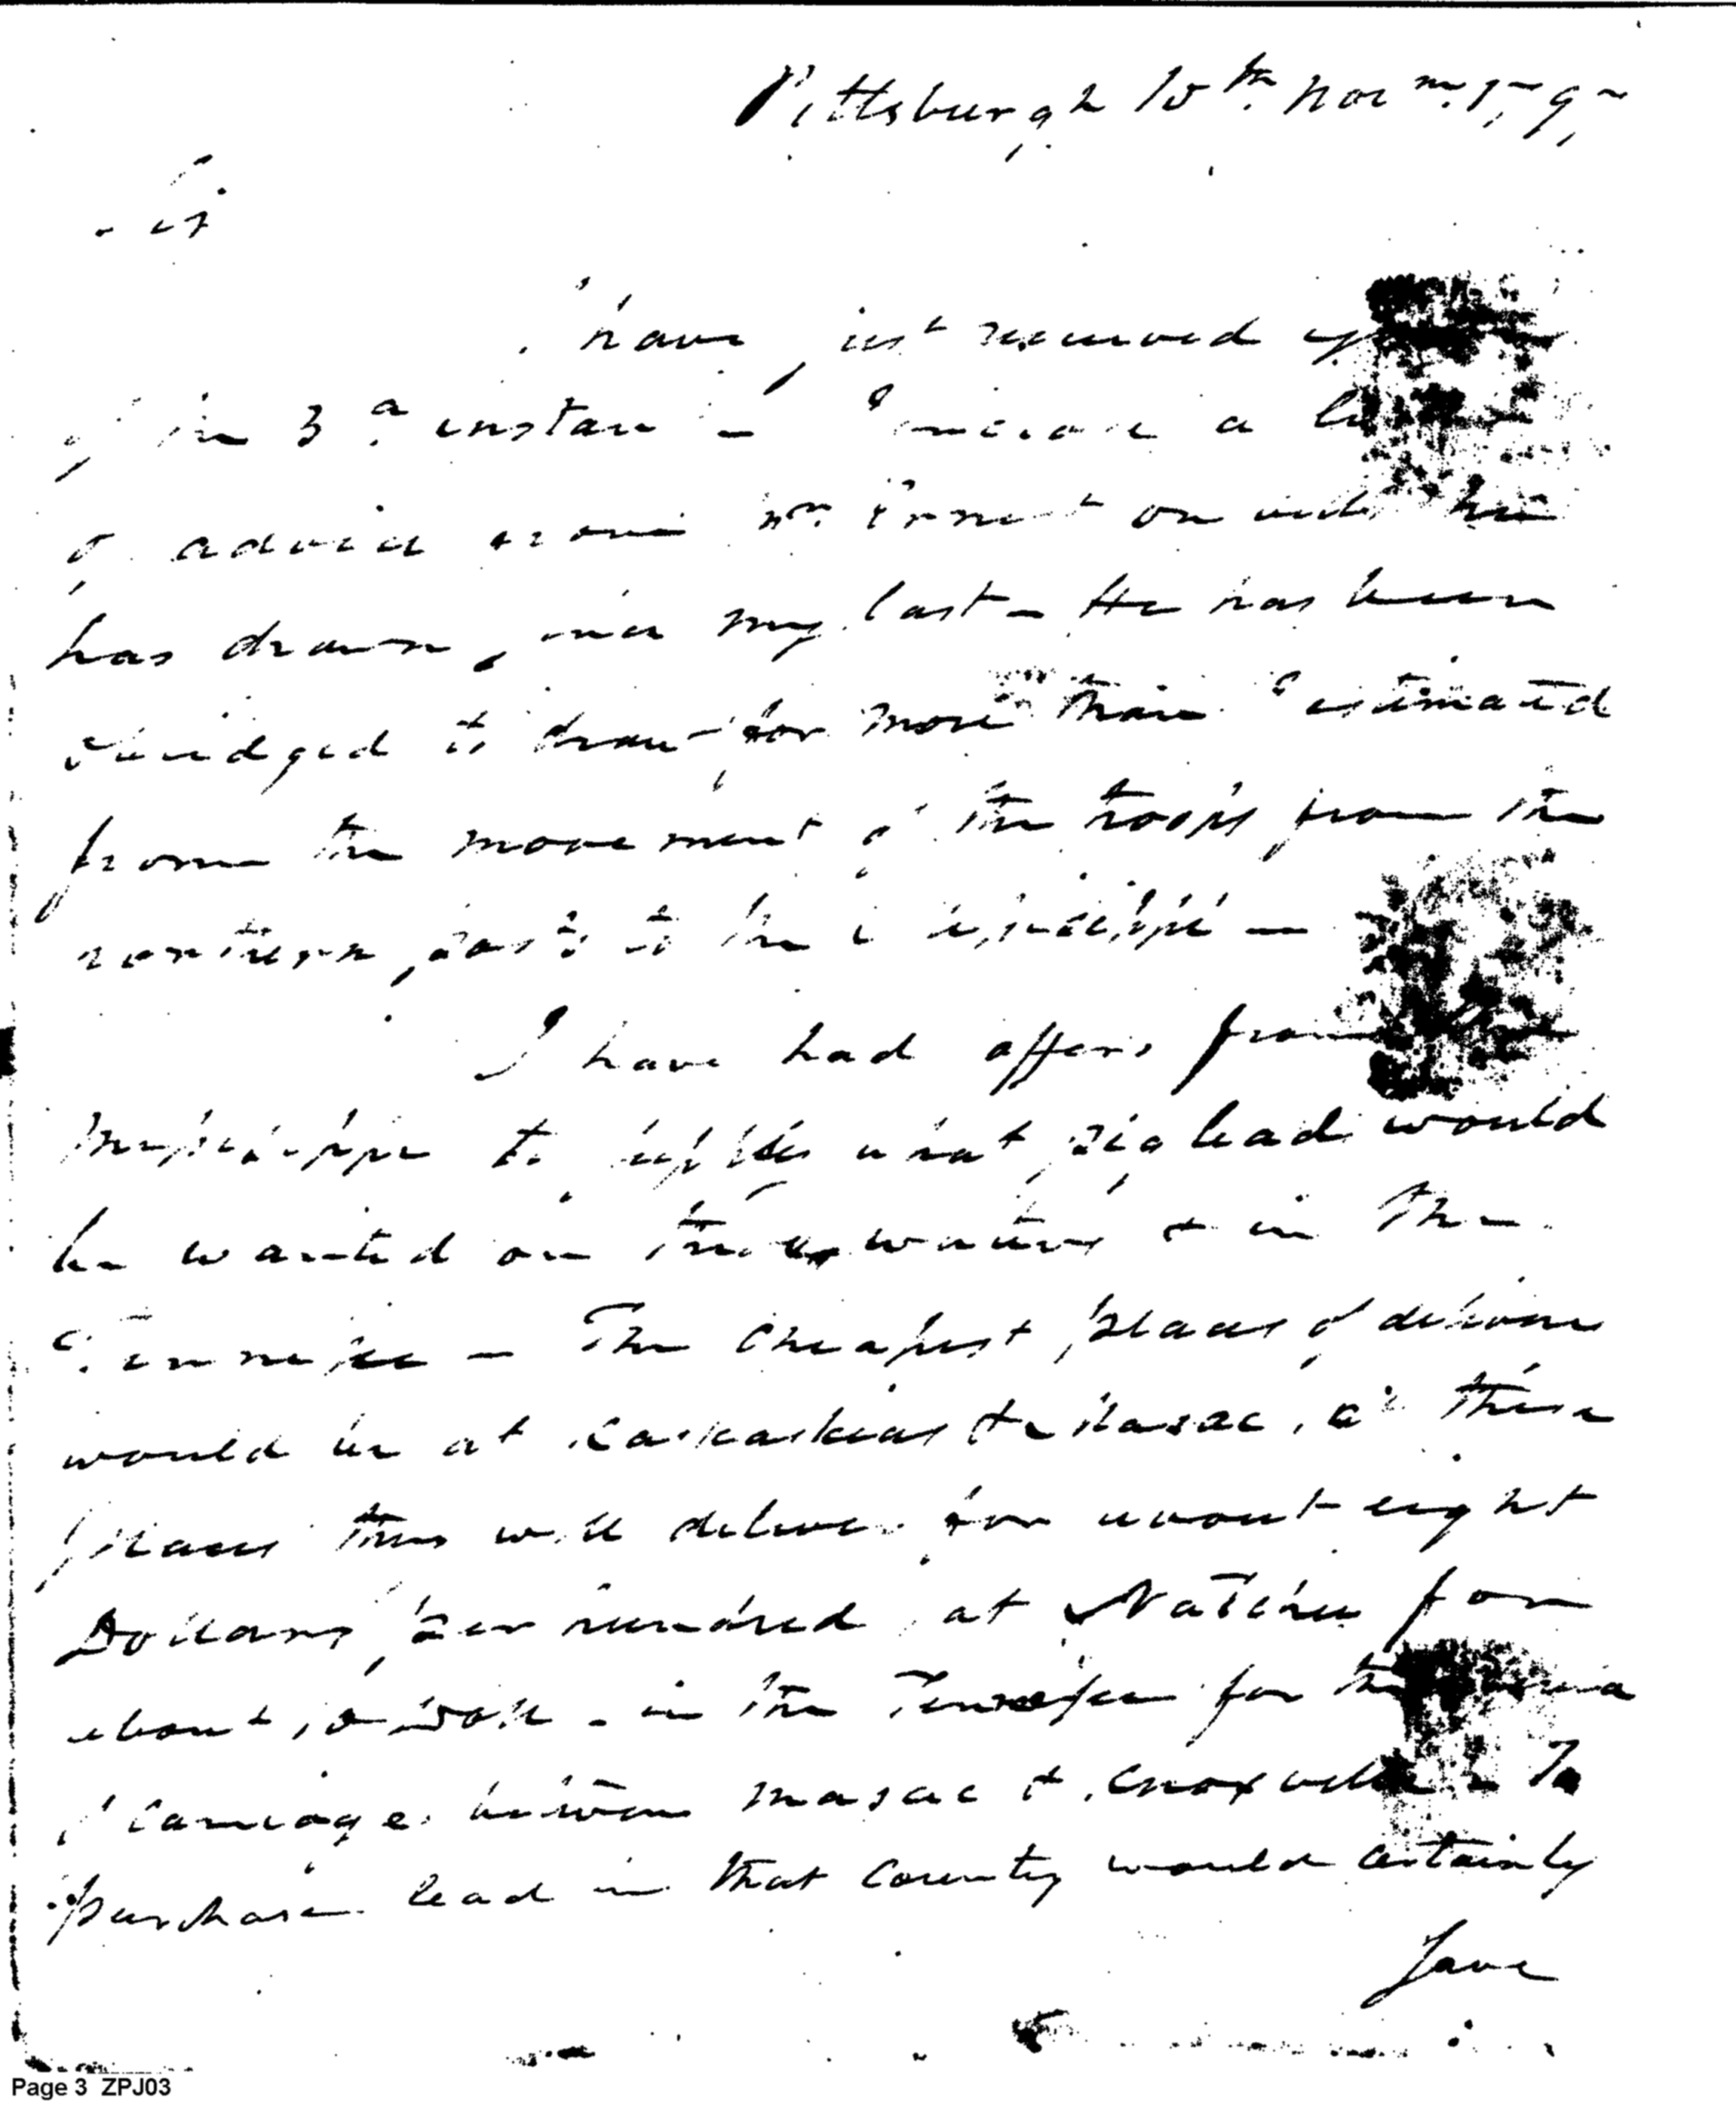 Pittsburgh 10th Novm. 179
Sir
I have just received
of the 3d instant – I inclose a
of advice from Mr Ernest on
has drawn since my last – He has been
obliged to draw for more than I estimated
from the movement of the troops from the
northern posts to the Mississippi —
I have had offers from
Mississippi to supply what pig lead would
be wanted on these waters & in the
Tennessee – The cheapest places of delivery
would be at Kaskaskias & Masac, at these
places they will deliver for about eight
Dollars per hundred, at Natchez for
about 10 Doll. – in the Tennessee for the
of carriage between Masac & Knoxville – To
purchase lead in that Country would certainly
save
Page 3 ZPJ03